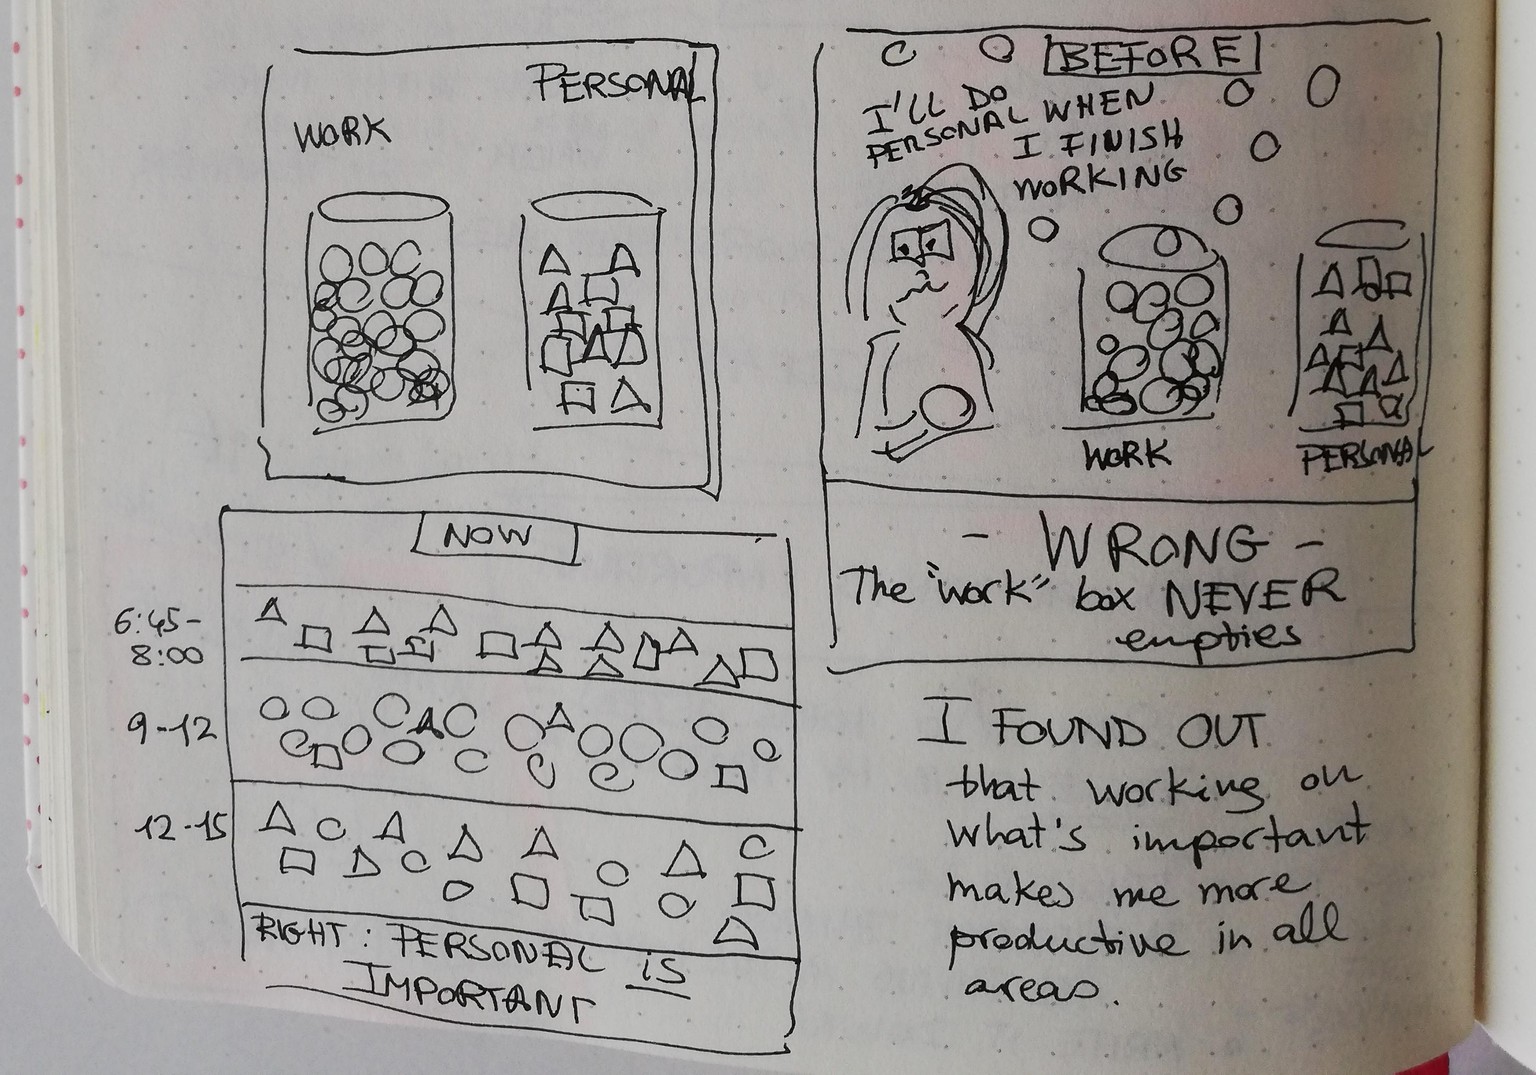 PERSONAL
WORK
BEFORE
I'LL DO
PERSONAL WHEN
I FINISH
WORKING
WORK
PERSONAL
- WRONG -
The "work" box NEVER
empties
NOW
6:45-
8:00
9-12
12-15
RIGHT: PERSONAL IS
IMPORTANT
I FOUND OUT
that working on
what's important
makes me more
productive in all
areas.